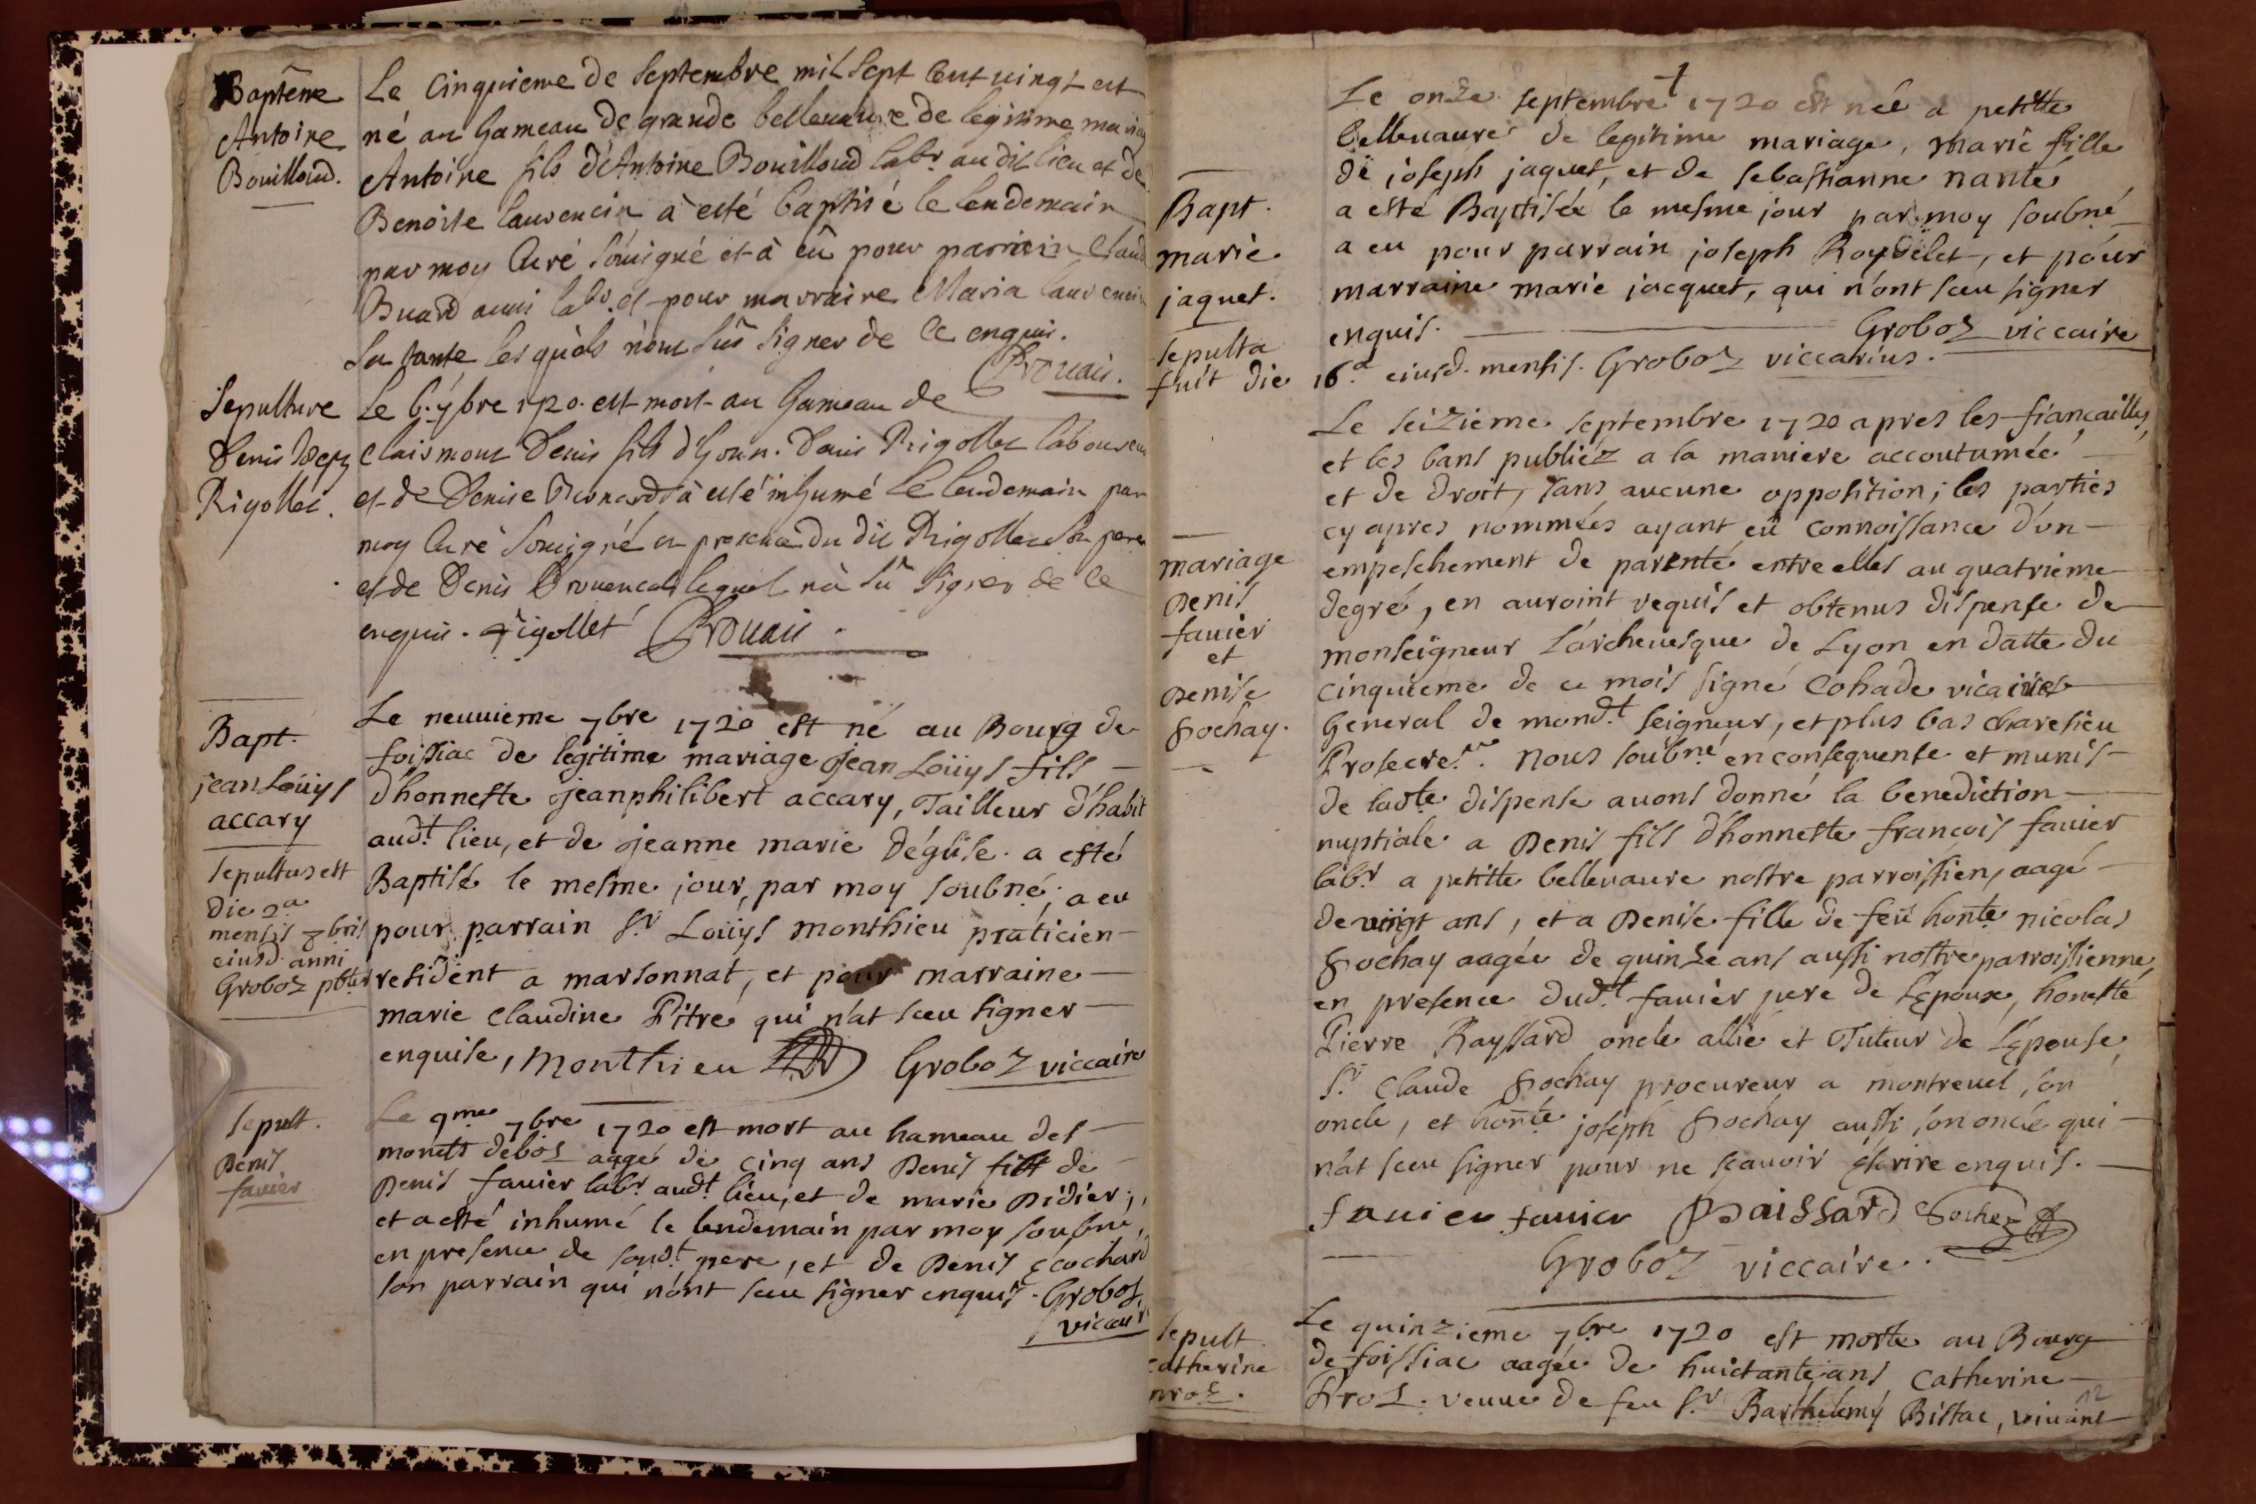 Baptême
Antoine
Bouilloud.
Le Cinquieme de septembre mil sept Cent vingt est
né au hameau de grande bellevavre de legitime mariag
Antoine fils d'Antoine Bouilloud labr. au dit lieu et de
Benoite laurencin à esté baptisé le lendemain
par moy Curé soussigné et à eû pour parrain Claud
Buard aussi labr. et pour marraine Maria laurencin
sa tante lesquels n'ont sû signer de ce enquis.
Prouais.
Sepulture
Denis
Rigollet.
Le 6. 7bre 1720. est mort au hameau de
Clairmont Denis fils d'hon. Denis Rigollet laboureur
et de Denise à esté inhumé le lendemain par
moy Curé soussigné en presence du dit Rigollet son pere
et de Denis Prouencal lequel n'à sû signer de ce
enquis. Rigollet Prouais.
Bapt.
jean Loüys
accary
sepultus est
die 2a
mensis 8bris
eiusd. anni
Groboz pbter
Le neuuieme 7bre 1720 est né au Bourg de
foissiac de legitime mariage jean Loüys fils
d'honneste jeanphilibert accary, Tailleur d'habit
audt. lieu, et de jeanne marie déglise. a esté
Baptisé le mesme jour, par moy soubné; a eu
pour parrain Sr Loüys monthieu praticien
resident a marsonnat, et pour marraine
marie claudine Pitre qui n'at sceu signer
enquise, Monthieu Groboz viccaire
Sepult.
Denis
fauier
Le 9me 7bre 1720 est mort au hameau des
monts debos aagé de cinq ans Denis fils de
Denis fauier labr audt lieu, et de marie Didier;
et a esté inhumé le lendemain par moy soubné,
en presence de sondt. pere, et de Denis Ecochard
son parrain qui n'ont sceu signer enquis. Groboz
viccair
Bapt.
marie
jaquet.
Le onze septembre 1720 est née a petitte
bellevavre de legitime mariage, marie fille
de joseph jaquet, et de sebastianne nante
a esté Baptisée le mesme jour par moy soubné
a eu pour parrain joseph Roydelet, et pour
marraine marie jacquet, qui n'ont sceu signer
enquis. Groboz viccaire
sepulta
fuit die 16.a eiusd. mensis. Groboz viccarius.
mariage
Denis
fauier
et
Denise
Sochay.
Le seizieme septembre 1720 apres les fiançailles,
et les bans publiéz a la maniere accoutumée
et de droit, sans aucune opposition; les parties
cy apres nommées ayant eü connoissance d'un
empeschement de parenté entre elles au quatrieme
degré, en auroint requis et obtenus dispense de
monseigneur L'archeuesque de Lyon en datte du
cinquieme de ce mois signé Cohade vicaire
General de mondt. seigneur, et plus bas charesieu
Prosecrere. Nous soubné en consequense et munis
de ladte dispense auons donné la benediction
nuptiale a Denis fils d'honneste françois fauier
labr a petitte bellevavre nostre parroissien, aagé
de vingt ans, et a Denise fille de feü honte nicolas
Sochay aagée de quinze ans aussi nostre parroissienne,
en presence dudt fauier pere de L'epoux, honesté
Pierre Rayssard oncle allié et Tuteur de L'épouse,
Sr. Claude Sochay procureur a montreuel, son
oncle, et honte joseph Sochay aussi son oncle qui
n'at sceu signer pour ne scauoir écrire enquis.
fauier fauier Raissard Sochay
Groboz viccaire.
sepult
catherine
proz.
Le quinzieme 7bre 1720 est morte au Bourg
de foissiac aagée de huictante ans Catherine
Proz. veuue de feu Sr Barthelemy Bistac, viuant
12